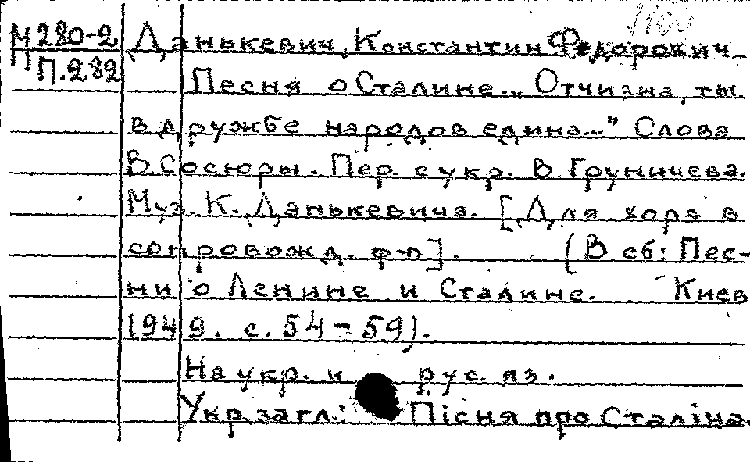 М 280-2 Данькевич, Константин Федорович.
П П.282
Песня о Сталине. „Отчизна, ты
в дружбе народов едина..." Слова
В. Сосюры. Пер. с укр. В. Груничева.
Муз. К. Данькевича. [Для хора в
сопровожд. ф-п]. (В сб: Пес-
ни о Ленине и Сталине. Киев
1949. с. 54-59).
На укр. и рус. яз.
Укр. загл.: Пісня про Сталіна.